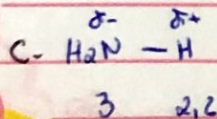 δ- δ+
C- H2N – H
3 2,2